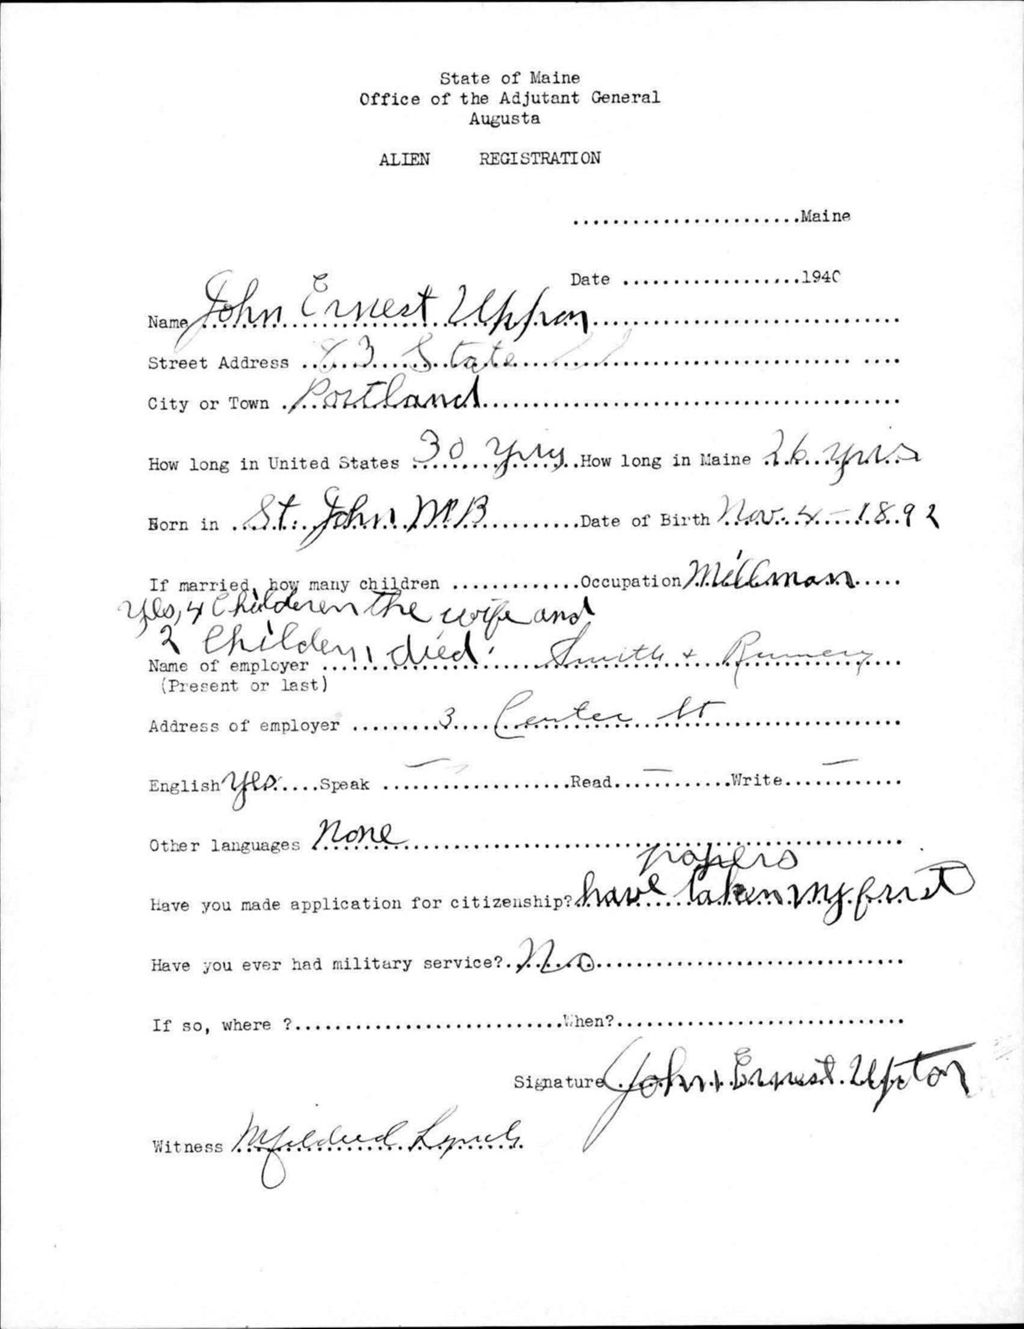 State of Maine
Office of the Adjutant General
Augusta
ALIEN REGISTRATION
.......................Maine
Date ..................1940
Name John Ernest Upton
Street Address 83 State
City or Town Portland
How long in United States 30 yrs How long in Maine 26 yrs
Born in St. John N B Date of Birth Nov. 4 - 1892
If married, how many children .............Occupation Millman
Yes, 4 Childeren the wife and
2 Childern, died.
Name of employer Smith & Rumery
(Present or last)
Address of employer 3 Center St
English Yes Speak — Read — Write —
Other languages None
papers
Have you made application for citizenship? have taken my first
Have you ever had military service? No
If so, where ?...........................When?.............................
Signature John Ernest Upton
Witness Mildred Lynch